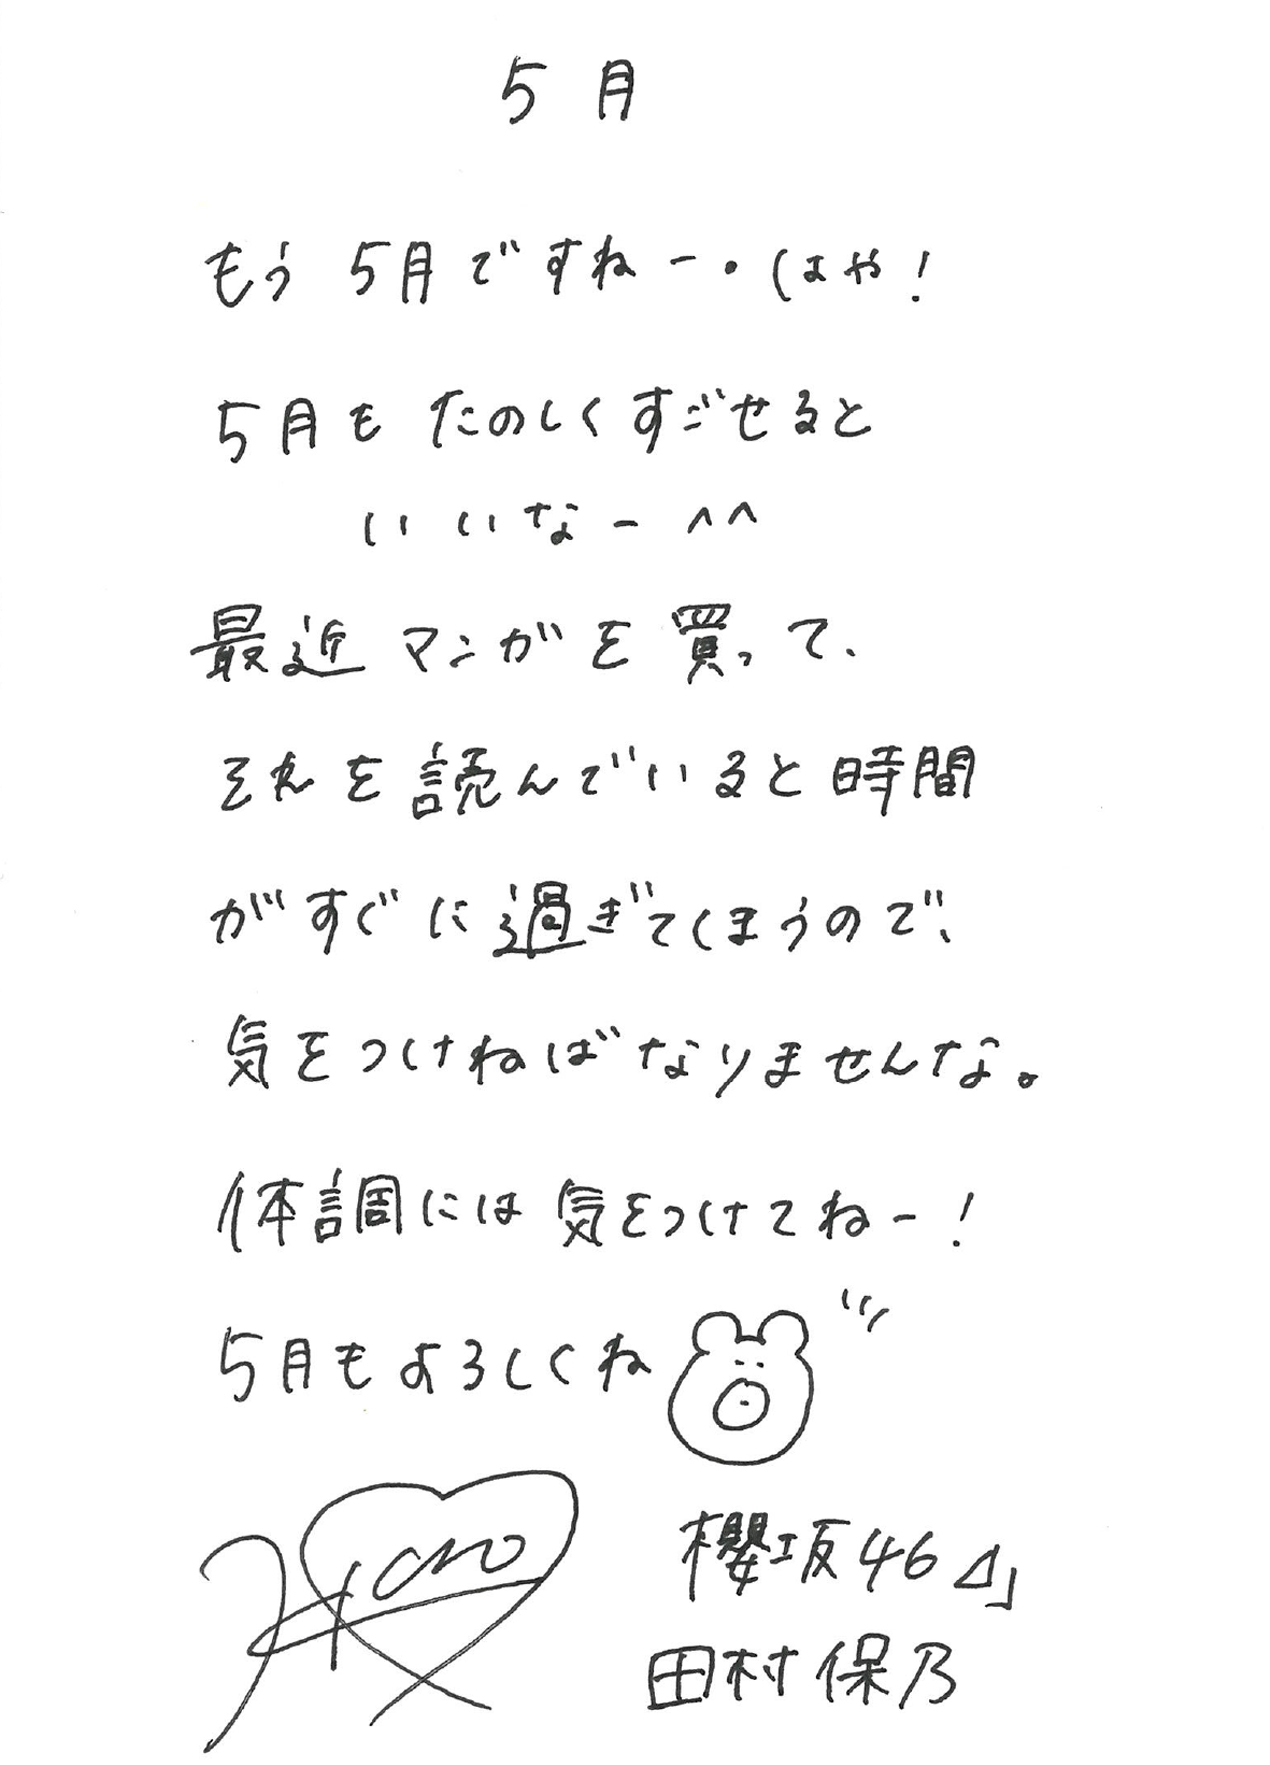 5月
もう 5月ですねー・はや！
5月も たのしくすごせると
いいなー ^^
最近 マンガを買って、
それを読んでいると時間
がすぐに過ぎてしまうので、
気をつけねばなりませんな。
体調には気をつけてねー！
5月もよろしくね
櫻坂46
田村保乃